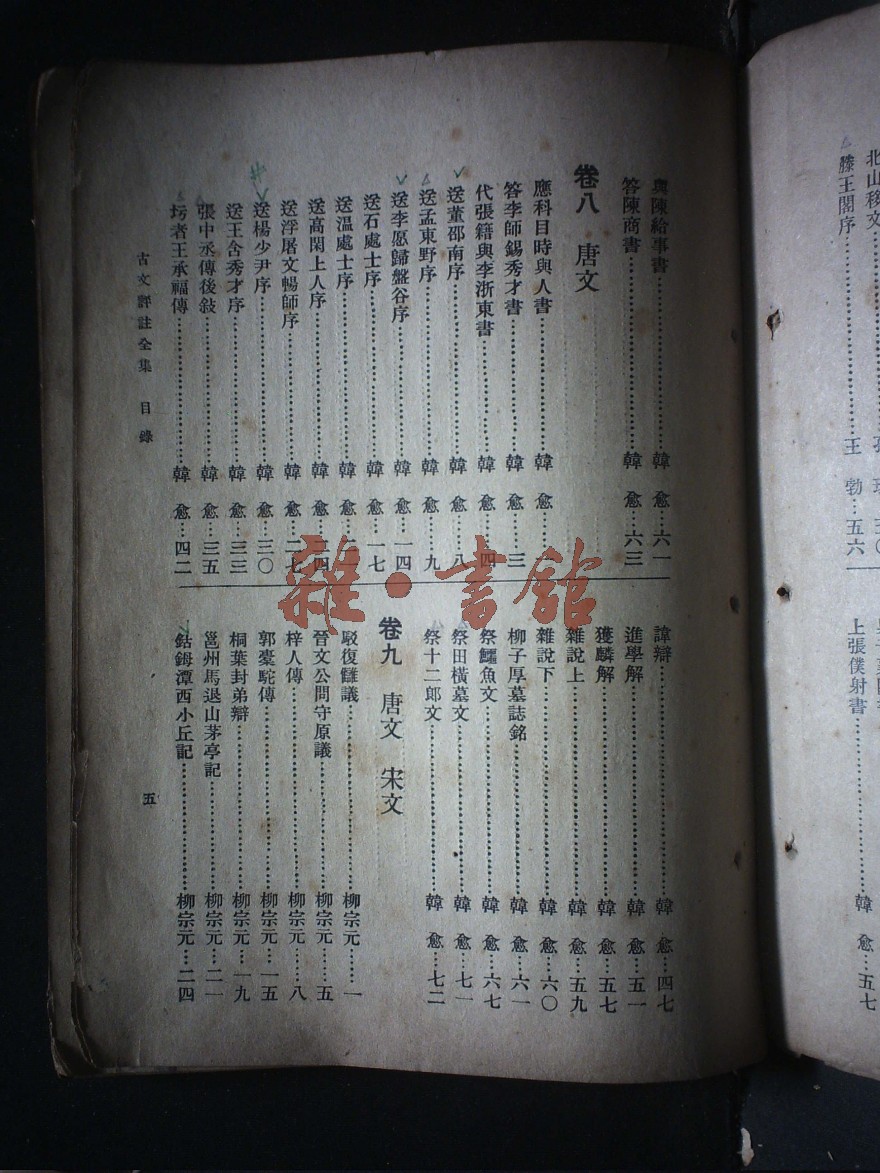 北山移文
滕王閣序……王 勃…五六
上張僕射書……韓 愈…五七
與陳給事書……韓 愈…六一
答陳商書……韓 愈…六三
卷八 唐文
應科目時與人書……韓 愈…一
答李師錫秀才書……韓 愈…三
代張籍與李浙東書……韓 愈…四
送董邵南序……韓 愈…八
送孟東野序……韓 愈…九
送李愿歸盤谷序……韓 愈…一四
送石處士序……韓 愈…一七
送温處士序……韓 愈…二一
送高閑上人序……韓 愈…二四
送浮屠文暢師序……韓 愈…二七
送楊少尹序……韓 愈…三〇
送王含秀才序……韓 愈…三三
張中丞傳後敍……韓 愈…三五
圬者王承福傳……韓 愈…四二
諱辯……韓 愈…四七
進學解……韓 愈…五一
獲麟解……韓 愈…五七
雜說上……韓 愈…五九
雜說下……韓 愈…六〇
柳子厚墓誌銘……韓 愈…六一
祭鱷魚文……韓 愈…六七
祭田橫墓文……韓 愈…七一
祭十二郎文……韓 愈…七二
卷九 唐文 宋文
駁復讎議……柳宗元……一
晉文公問守原議……柳宗元……五
梓人傳……柳宗元……八
郭橐駝傳……柳宗元…一五
桐葉封弟辯……柳宗元…一九
邕州馬退山茅亭記……柳宗元…二一
鈷鉧潭西小丘記……柳宗元…二四
古文評註全集 目錄
五
雜·書館